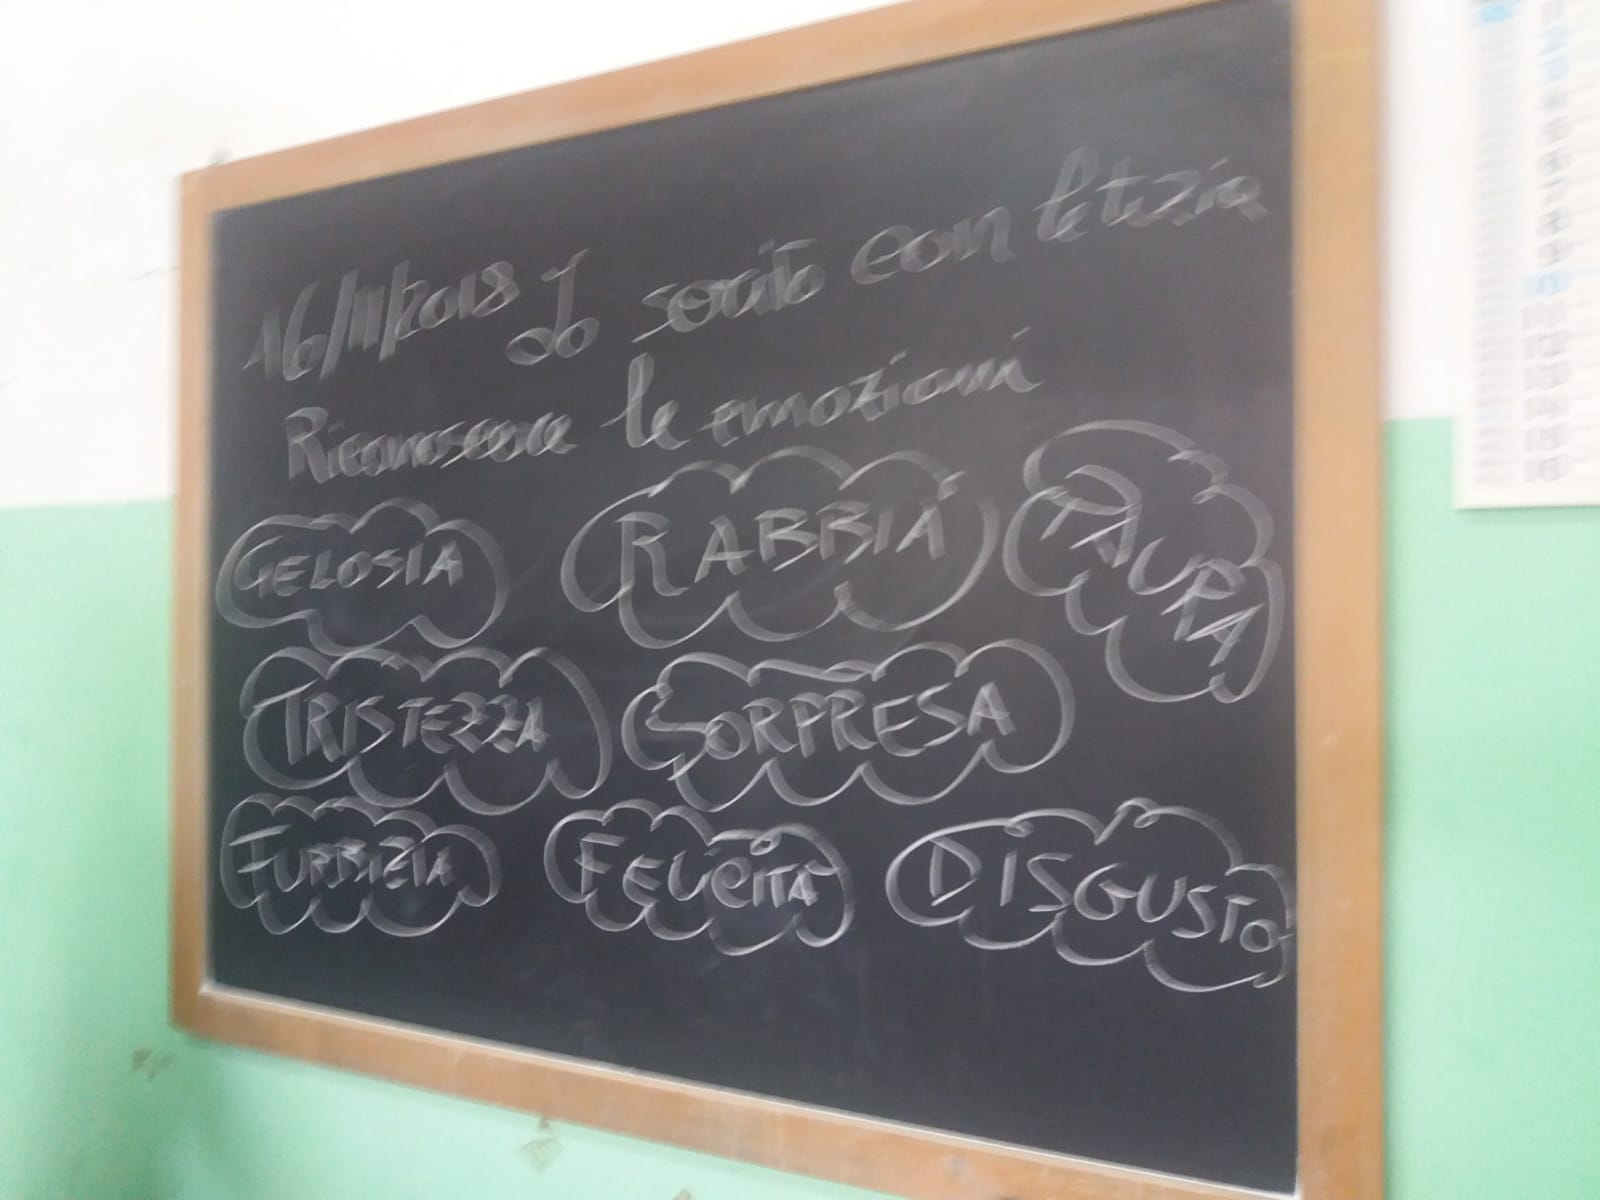 16/11/2018 Io
do scritto con letizia
Riconoscere le emozioni
GELOSIA
RABBIA
PAURA
TRISTEZZA
SORPRESA
FURBIZIA
FELICITÀ
DISGUSTO